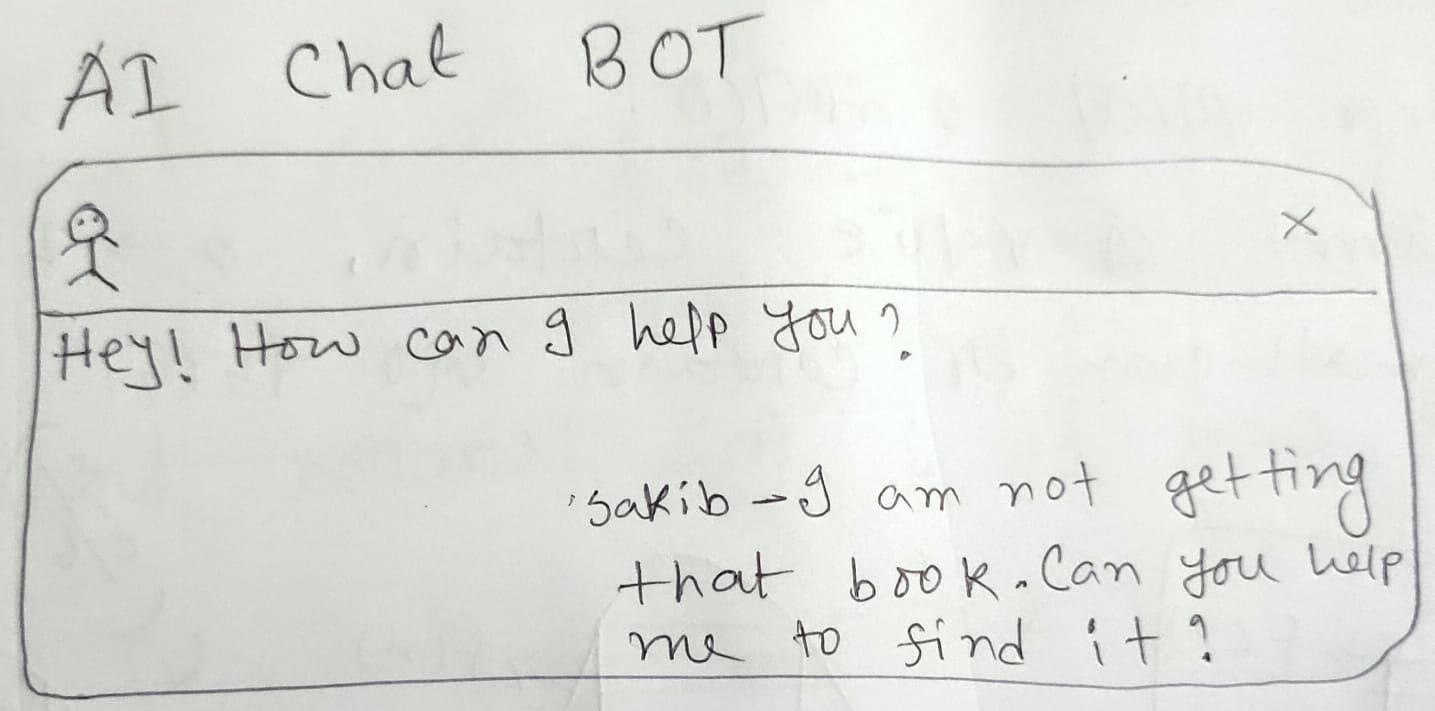 AI Chat BOT
X
Hey! How can I help you?
Sakib - I am not getting
that book. Can you help
me to find it?